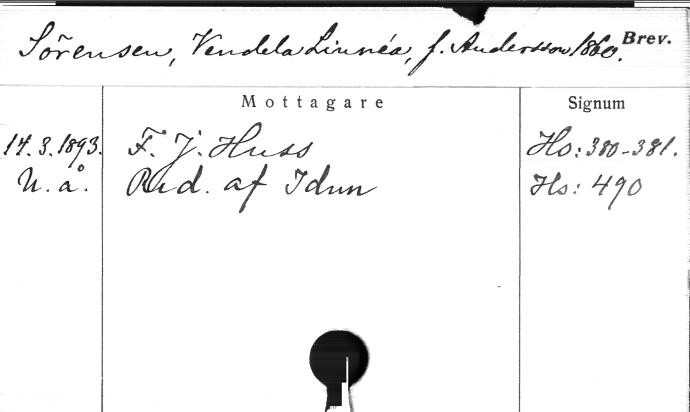 Sörensen, Vendela Linnéa, f. Andersson 1860. Brev.
Mottagare Signum
14.3.1893. F. J. Huss Ho: 380-381.
U. å. Red. af Idun Hs: 490